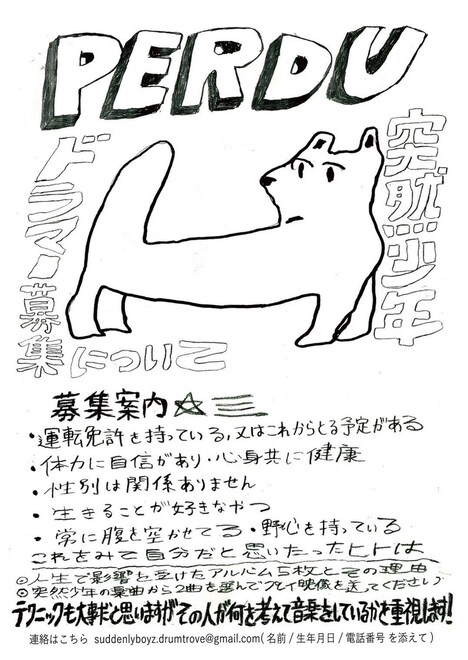 PERDU
突然少年
ドラマー募集について
募集案内☆三
・運転免許を持っている,又はこれからとる予定がある
・体力に自信があり・心身共に健康
・性別は関係ありません
・生きることが好きなやつ
・常に腹を空かせてる・野心を持っている
これをみて自分だと思いたったヒトは
◎人生で影響を受けたアルバム5枚とその理由
◎突然少年の楽曲から2曲を選んでプレイ映像を送ってください
テクニックも大事だと思いますがその人が何を考えて音楽をしているかを重視します!
連絡はこちら suddenlyboyz.drumtrove@gmail.com( 名前 / 生年月日 / 電話番号 を添えて )